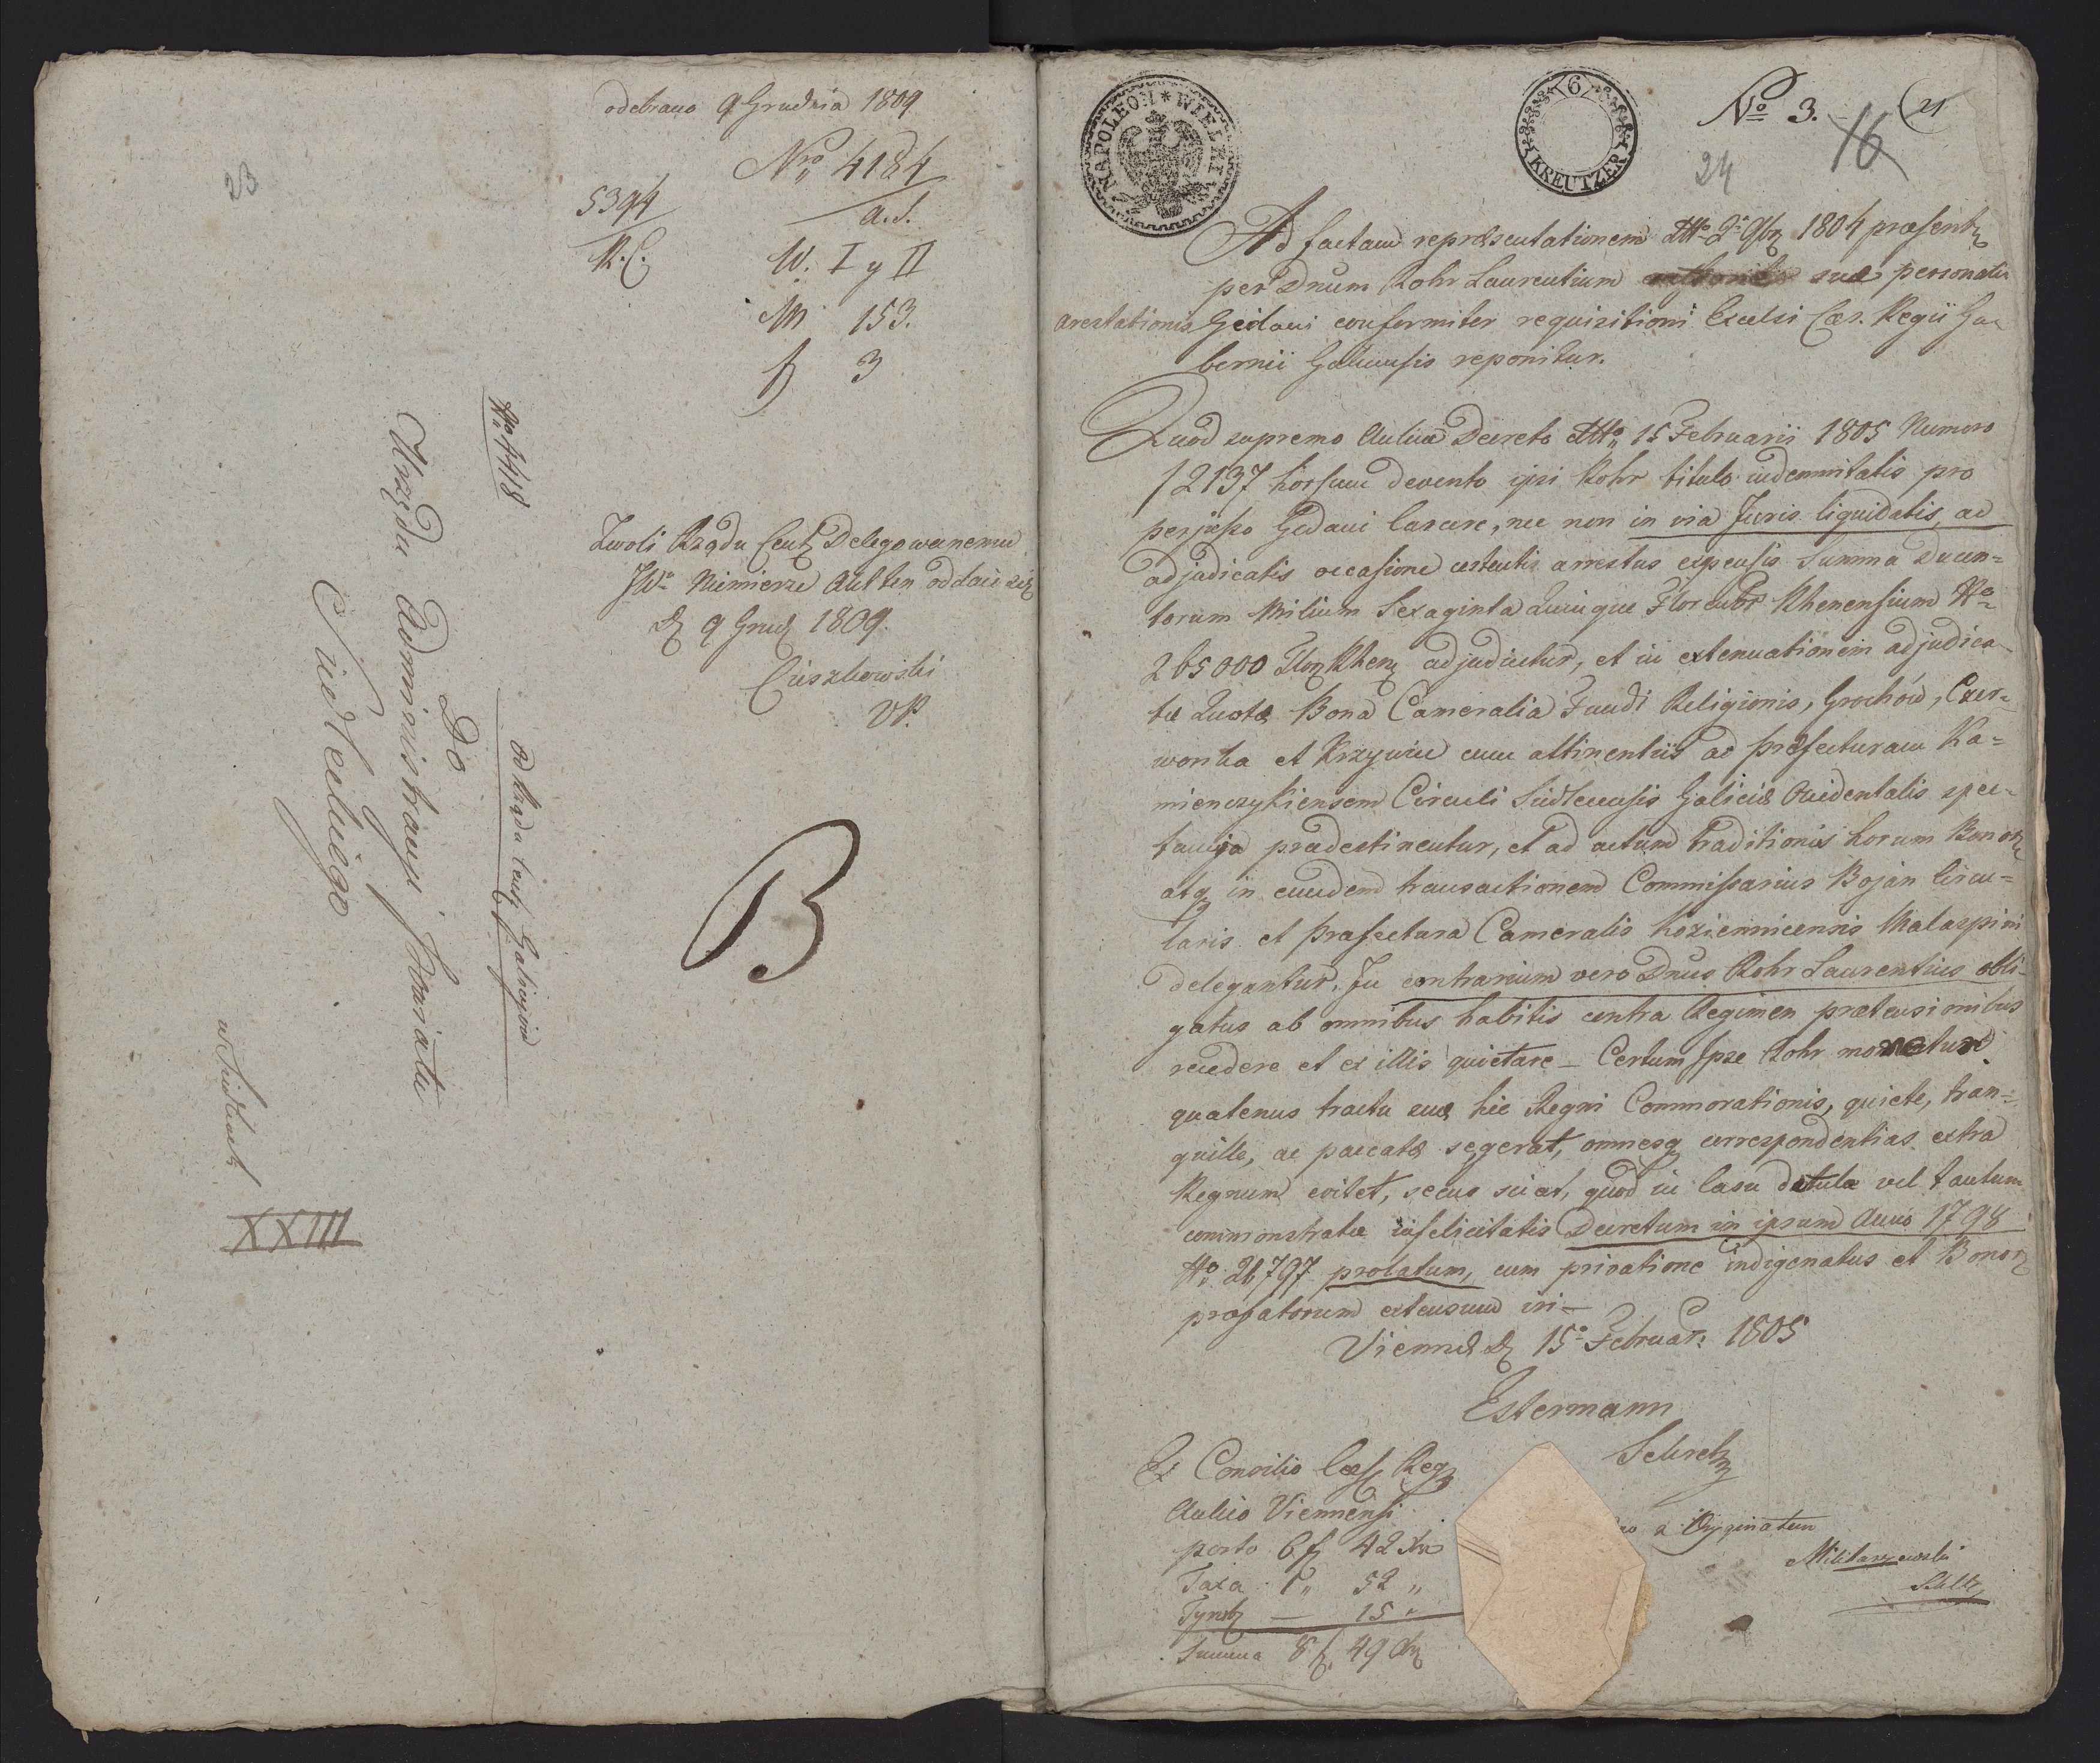 odebrano 9 Grudnia 1809
Nro 4184
a. S.
5394
K. C.
W. I y II
M 153.
f 3
23
No 4418
Od Rządu Cent Galicyjsk
Do
Urzędu Administracyi Kwiatu
Siedleckiego
w Siedlcach
XXIII
Zwoli Rządu Cent Delegowanemu
JWo Niemierze Akt ten oddaie się
D 9 Grud 1809.
Cieszkowski
VP.
B
NAPOLEON * WIELKI
6 KREUTZER
No 3.
21
16
24
Ad factam repræsentationem dtto 2a 9br 1804 præsent
per Dnum Rohr Laurentium suæ personalis
arestationis Gedani conformiter requisitioni Excelsi Cæs. Regii Gu
bernii Galiciensis reponitur.
Quod supremo Aulico Decreto dtto 15 Februarii 1805 Numero
12137 horsum devento ipsi Rohr titulo indemnitatis pro
perpesso Gedani Carcere, nec non in via Juris liquidatis, ac
adjudicatis occasione arrestus expensis Summa Ducen=
torum Milium Sexaginta Quinque Florenor Rhenensium No
265000 Flor Rhen adjudicetur, et in extenuationem adjudica
tæ Quotæ Bona Cameralia Fundi Religionis, Grochów, Czer=
wonka et Krzywice cum attinentiis ad præfecturam Ka=
mienczykiensem Circuli Siedlecensis Galiciæ Occidentalis spec=
tancia prædestinentur, et ad actum traditionis horum Bonor
atq in eundem transactionem Commissarius Bojan Circu=
laris et Præfectura Cameralis Koziennicensis Malaspini
delegantur. In contrarium vero Dnus Rohr Laurentius obli=
gatus ab omnibus habitis contra Regimen prætensionibus
recedere et ex illis quietare – Certum Ipse Rohr moneatur
quatenus tractu suæ hic Regni Commorationis, quiete, tran=
quille, ac paccate segerat, omnesq correspondentias extra
Regnum evitet, secus sciat, quod in Casu datulæ vel tantum
commonstratæ infelicitatis Decretum in ipsum Anno 1798
No 26797 prolatum, cum privatione indigenatus et Bonor
præfatorum extensum iri –
Viennæ D 15a Februar: 1805
Estermann
Sekret
Ex Consilio Cæs Reg
Aulico Viennensi
porto 6 f 42 Xr
Taxa 1 " 52 "
— 15 "
Summa 8 f 49 Xr
a Oryginałem